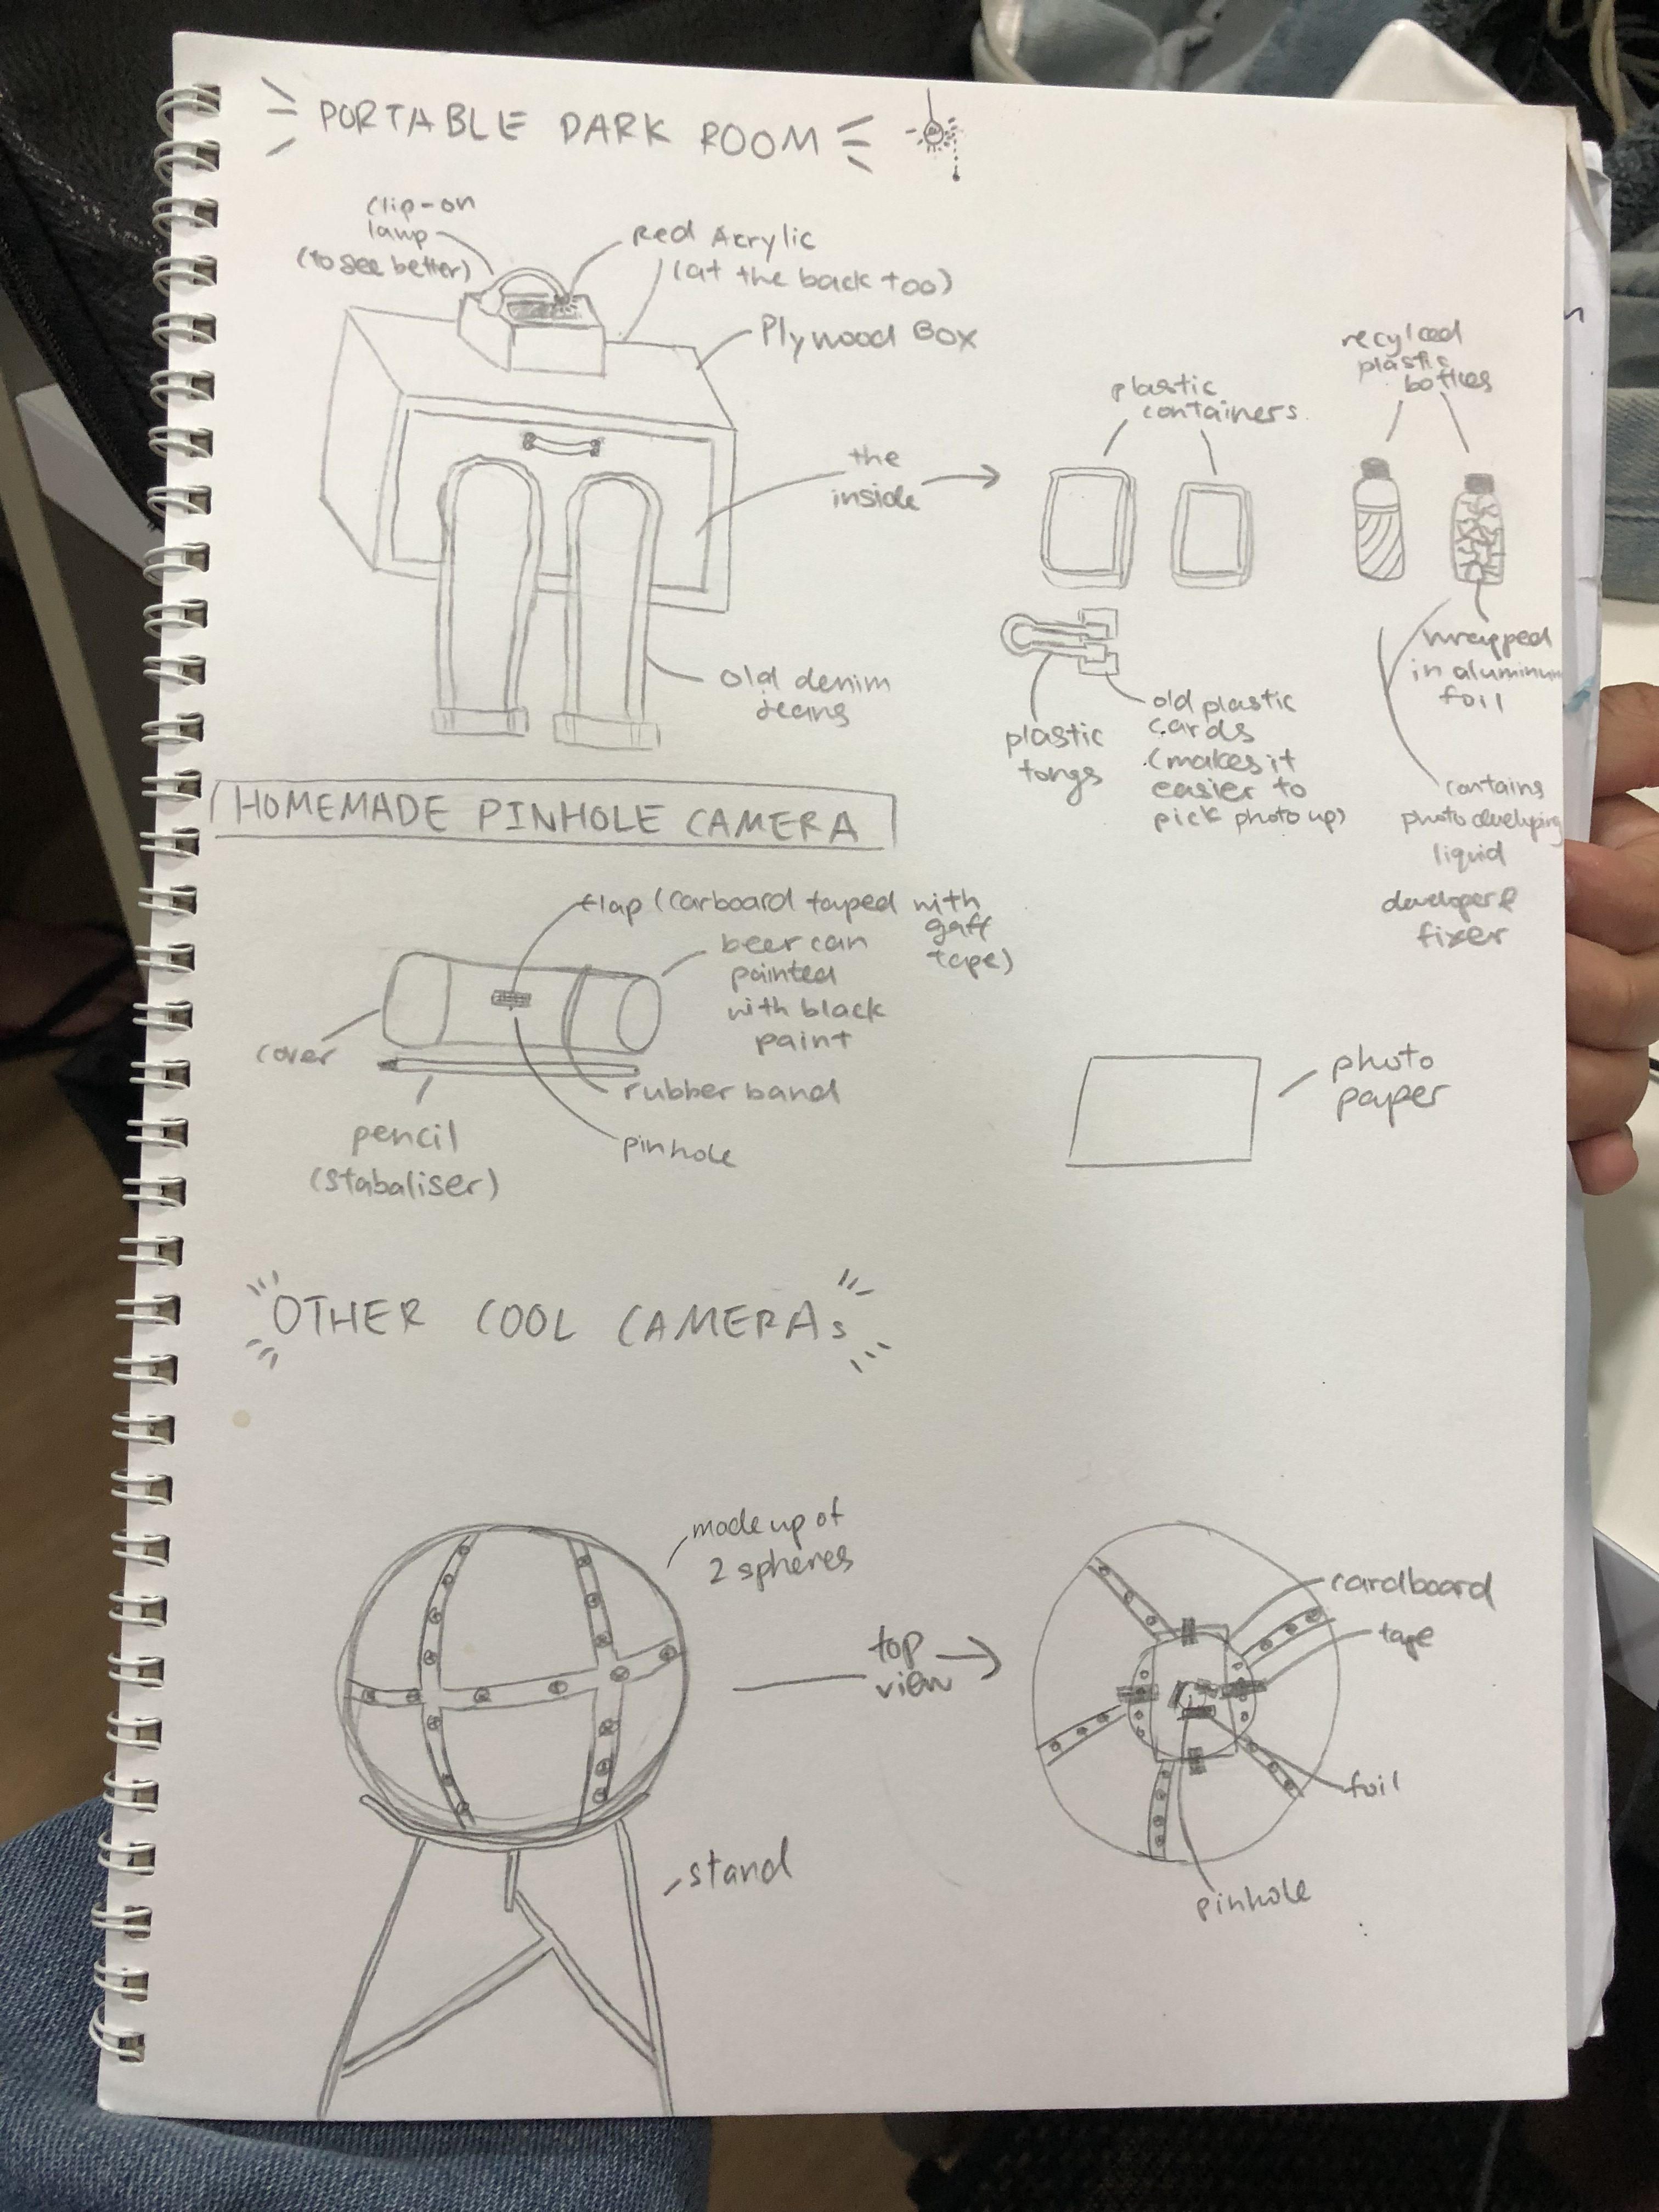 PORTABLE DARK ROOM
clip-on
lamp
(to see better)
Red Acrylic
(at the back too)
Plywood Box
the
inside
old denim
jeans
plastic
containers
recylced
plastic
bottles
wrapped
in aluminum
foil
plastic
tongs
old plastic
cards
(makes it
easier to
pick photo up)
contains
photo developing
liquid
developer &
fixer
HOMEMADE PINHOLE CAMERA
flap (carboard taped with
gaff
tape)
beer can
painted
with black
paint
cover
rubber band
pencil
(stabaliser)
pinhole
photo
paper
OTHER COOL CAMERAs
made up of
2 spheres
top
view
stand
cardboard
tape
foil
pinhole